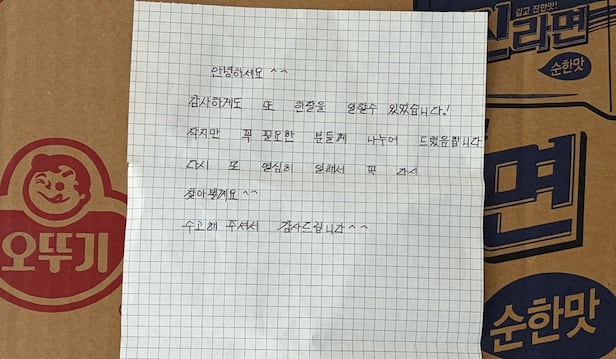 깊고 진한맛!
진라면
순한맛
안녕하세요^^
감사하게도 또 한달을 일할수 있었습니다!
작지만 꼭 필요한 분들께 나누어 드렸음합니다
다시 또 열심히 일해서 꼭 다시
찾아뵐게요^^
수고해 주셔서 감사드립니다^^
오뚜기
면
순한맛